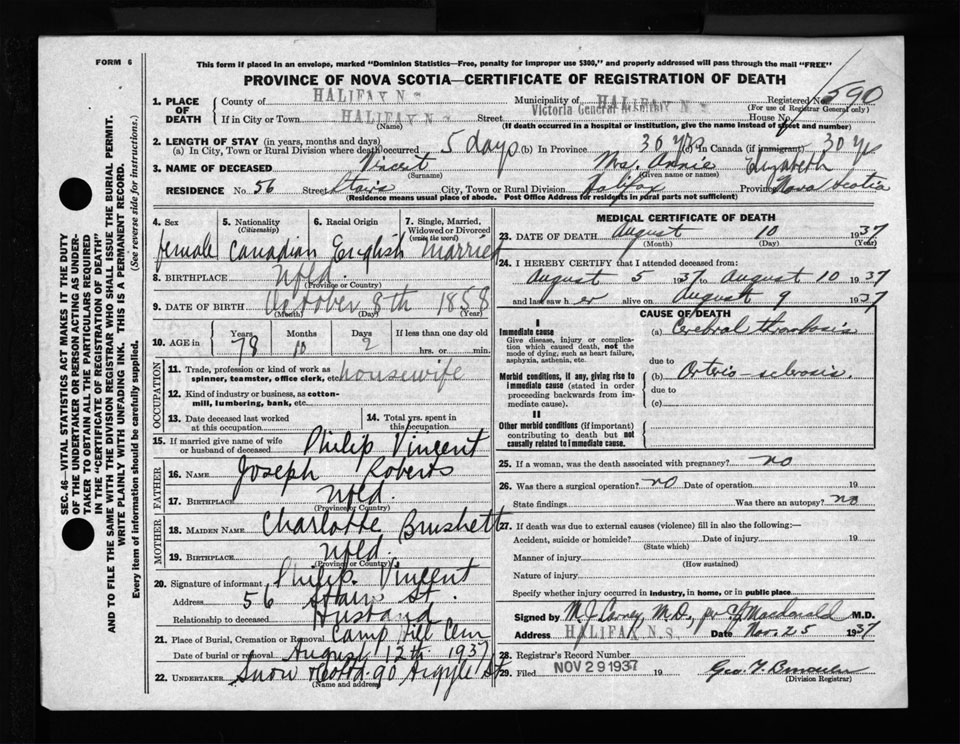 FORM 6
This form if placed in an envelope, marked "Dominion Statistics—Free, penalty for improper use $300," and properly addressed will pass through the mail "FREE"
PROVINCE OF NOVA SCOTIA—CERTIFICATE OF REGISTRATION OF DEATH
SEC. 46—VITAL STATISTICS ACT MAKES IT THE DUTY
OF THE UNDERTAKER OR PERSON ACTING AS UNDER-
TAKER TO OBTAIN ALL THE PARTICULARS REQUIRED
IN THE "CERTIFICATE OF REGISTRATION OF DEATH"
AND TO FILE THE SAME WITH THE DIVISION REGISTRAR WHO SHALL ISSUE THE BURIAL PERMIT.
WRITE PLAINLY WITH UNFADING INK. THIS IS A PERMANENT RECORD.
Every item of information should be carefully supplied. (See reverse side for instructions.)
1. PLACE OF DEATH County of HALIFAX N Municipality of HALIFAX N Registered No. 590
(For use of Registrar General only)
If in City or Town HALIFAX N Street Victoria General House No.
(Name) (If death occurred in a hospital or institution, give the name instead of street and number)
2. LENGTH OF STAY (in years, months and days)
(a) In City, Town or Rural Division where death occurred 5 days (b) In Province 30 yrs In Canada (if immigrant) 30 yrs
3. NAME OF DECEASED Vincent Mrs. Annie Elizabeth
(Surname) (Given name or names)
RESIDENCE No. 56 Street Stairs City, Town or Rural Division Halifax Province Nova Scotia
(Residence means usual place of abode. Post Office Address for residents in rural parts not sufficient)
4. Sex 5. Nationality (Citizenship) 6. Racial Origin 7. Single, Married, Widowed or Divorced (write the word)
female Canadian English married
8. BIRTHPLACE Nfld.
(Province or Country)
9. DATE OF BIRTH October 8th 1858
(Month) (Day) (Year)
10. AGE in Years Months Days If less than one day old
78 10 2 hrs. or min.
OCCUPATION
11. Trade, profession or kind of work as spinner, teamster, office clerk, etc. housewife
12. Kind of industry or business, as cotton-mill, lumbering, bank, etc.
13. Date deceased last worked at this occupation 14. Total yrs. spent in this occupation
15. If married give name of wife or husband of deceased Philip Vincent
FATHER
16. NAME Joseph Roberts
17. BIRTHPLACE Nfld.
(Province or Country)
MOTHER
18. MAIDEN NAME Charlotte Brushett
19. BIRTHPLACE Nfld.
(Province or Country)
20. Signature of informant Philip Vincent
Address 56 Stairs St.
Relationship to deceased Husband
21. Place of Burial, Cremation or Removal Camp Hill Cem
Date of burial or removal August 12th 1937
22. UNDERTAKER Snow & Co Ltd. 90 Argyle St
(Name and address)
MEDICAL CERTIFICATE OF DEATH
23. DATE OF DEATH August 10 1937
(Month) (Day) (Year)
24. I HEREBY CERTIFY that I attended deceased from:
August 5 1937 to August 10 1937
and last saw h er alive on August 9 1937
CAUSE OF DEATH
I
Immediate cause (a) Cerebral thrombosis
Give disease, injury or complica-
tion which caused death, not the
mode of dying, such as heart failure,
asphyxia, asthenia, etc.
due to
Morbid conditions, if any, giving rise to (b) Arterio-sclerosis.
immediate cause (stated in order due to
proceeding backwards from im- (c)
mediate cause).
II
Other morbid conditions (if important)
contributing to death but not
causally related to immediate cause.
25. If a woman, was the death associated with pregnancy? no
26. Was there a surgical operation? no Date of operation 19
State findings Was there an autopsy? no
27. If death was due to external causes (violence) fill in also the following:—
Accident, suicide or homicide? Date of injury 19
(State which)
Manner of injury
(How sustained)
Nature of injury
Specify whether injury occurred in industry, in home, or in public place
Signed by M.J. Carney, M.D., per Macdonald M.D.
Address HALIFAX N.S. Date Nov. 25 1937
28. Registrar's Record Number
29. Filed NOV 29 1937 19
(Division Registrar)